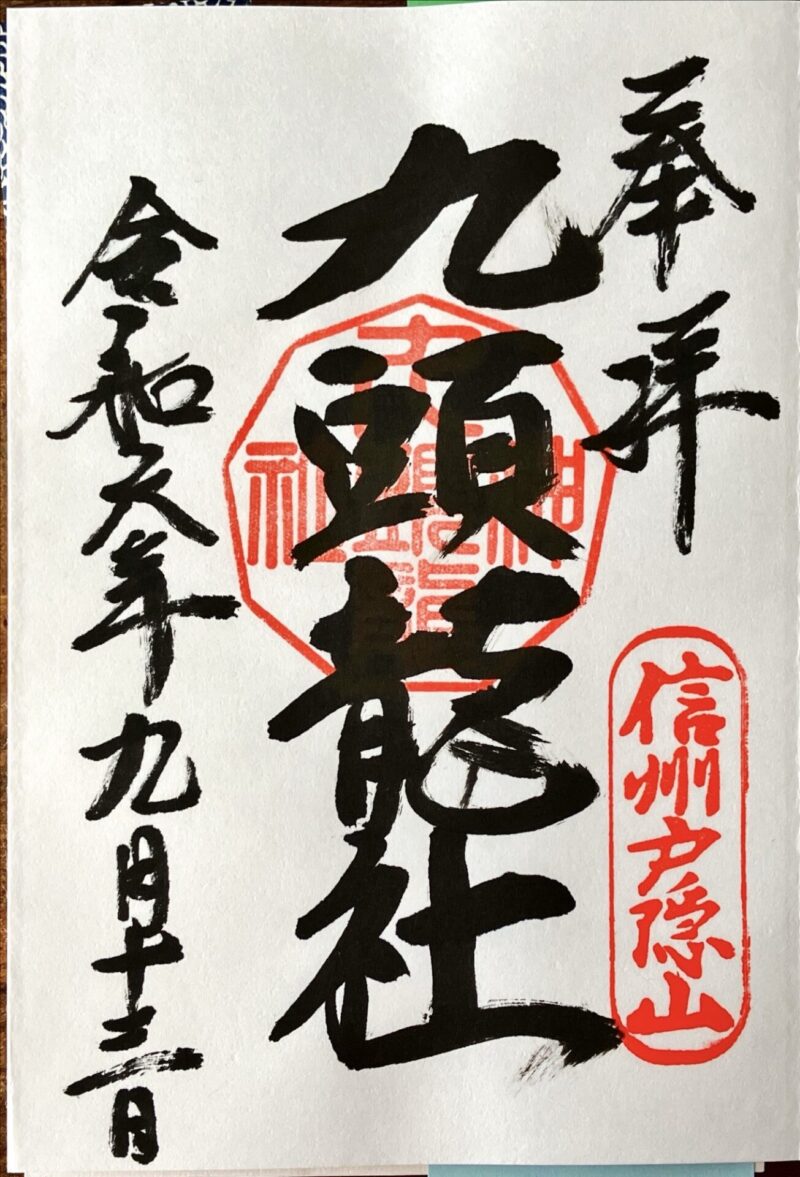 奉拝
信州戸隠山
九頭龍社
神
社
令和六年九月十三日